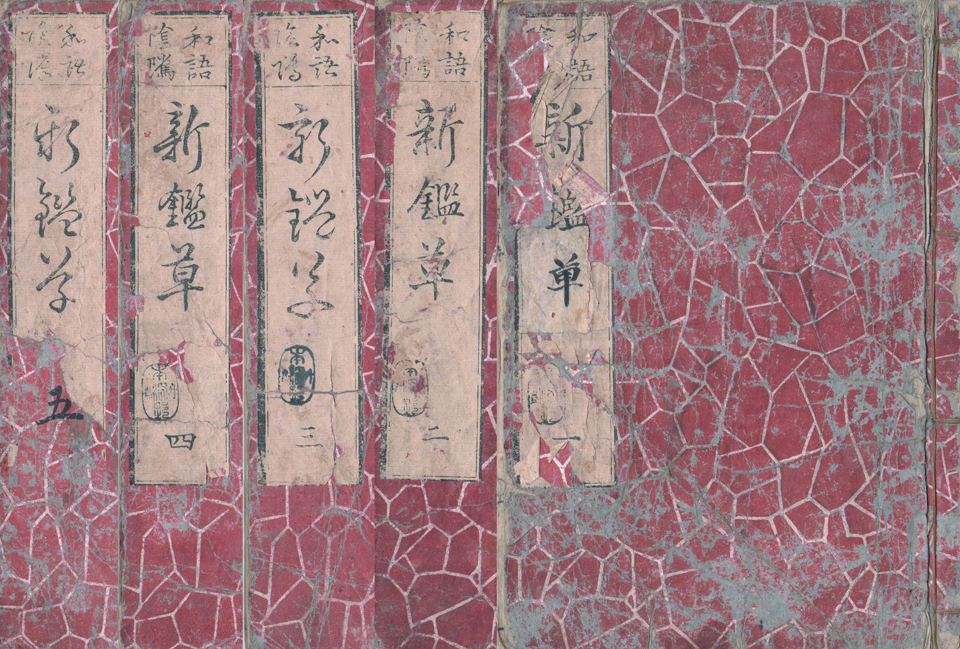 和語
陰
新鑑草
一
和語
陰隲
新鑑草
二
和語
陰隲
新鑑草
三
和語
陰隲
新鑑草
四
和語
陰隲
新鑑草
五